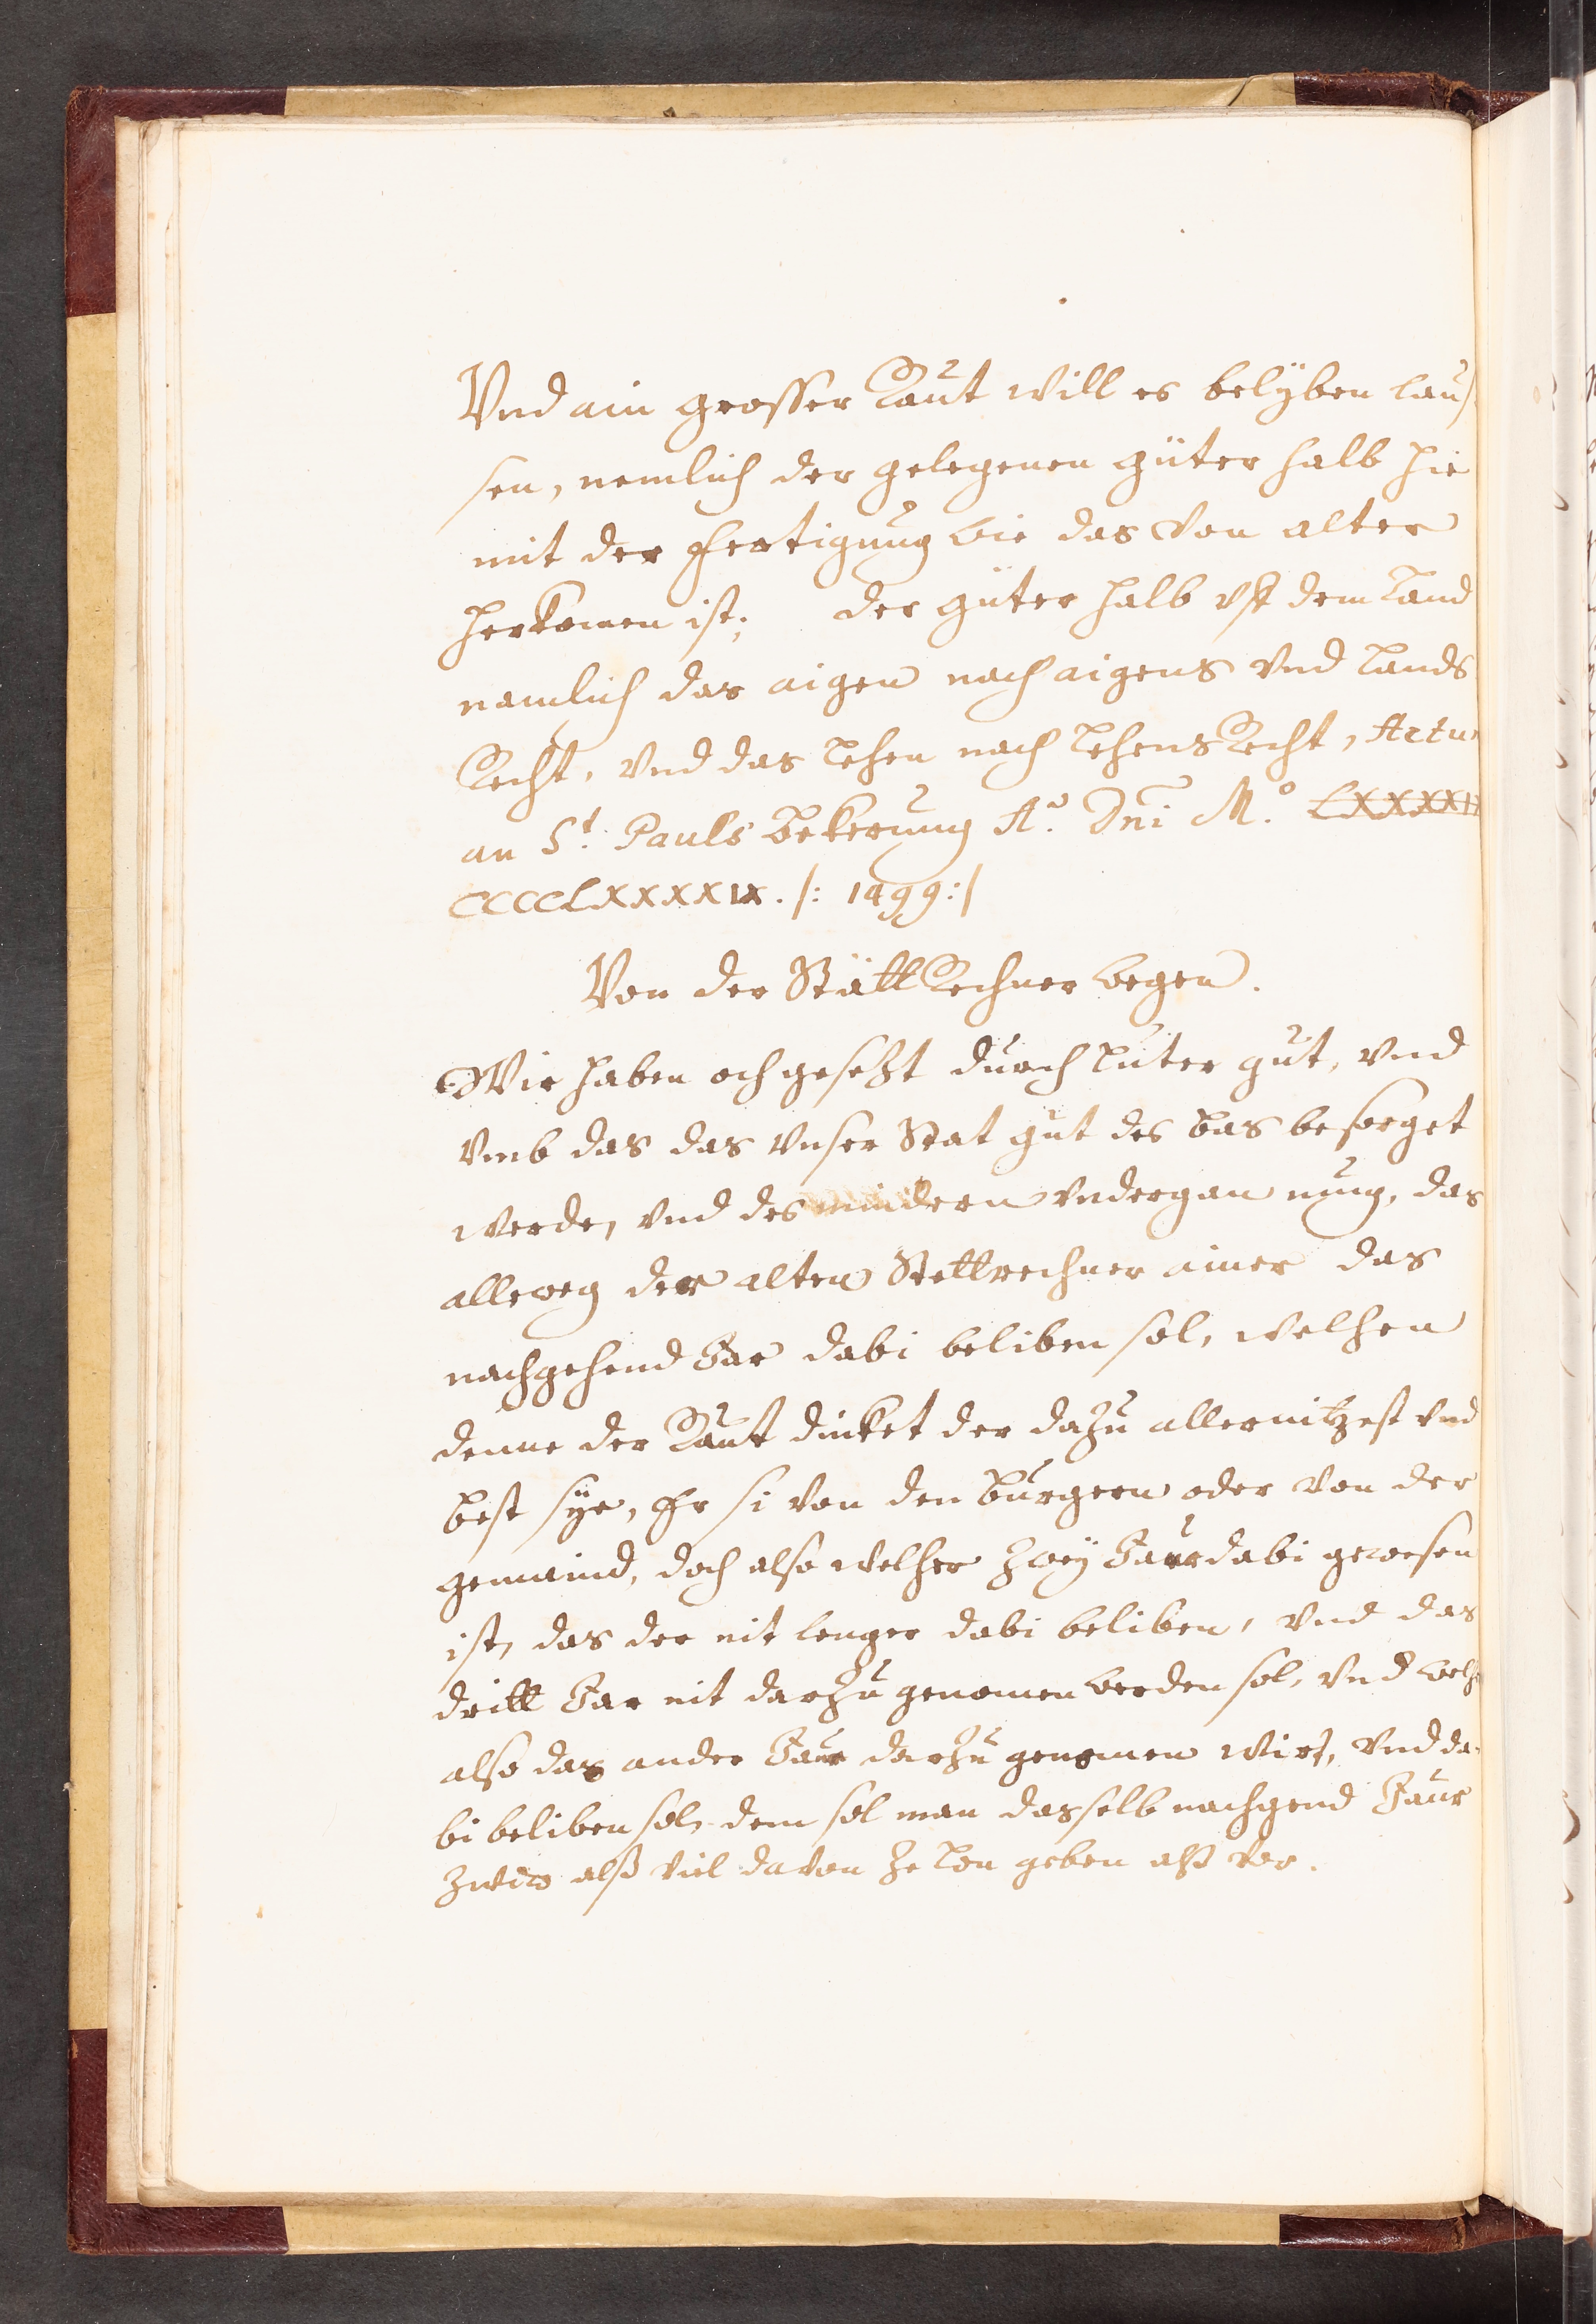 Vnd ain grosser Raut will es belyben laus-
sen, nemlich der gelegenen güter halb hie
mit der Fertigung wie das von alter
herkomen ist; der güter halb vff dem Land
namlich das aigen nach aigens vnd Lands
Recht, vnd das Lehen nach Lehens Recht, Actu
an St. Pauls Bekerung Ao. Dni M.o LXXXXII
CCCCLXXXXIX. /: 1499:/
Von der Stätt Rechner wegen.
Wir haben och gesetzt durch luter gut, vnd
vmb das das vnser Stat gut des bas besorget
werde, vnd des mindern vndergan mug, das
alleweg der alten Stettrechner ainer das
nachgehend Jar dabi beliben sol, welhen
denne der Raut dinket der dazu allernitzest vnd
best sye, Er si von den Burgern oder von der
gemaind, doch also welher zwey Jaur dabi gewesen
ist, das der nit lenger dabi beliben, vnd das
dritt Jar nit darzu genomen werden sol, vnd welh
also das ander Jaur darzu genomen wirt, vnd da-
bi beliben sol, dem sol man dasselb nachgend Jaur
zwir alß viel davon ze Lon geben alß vor.